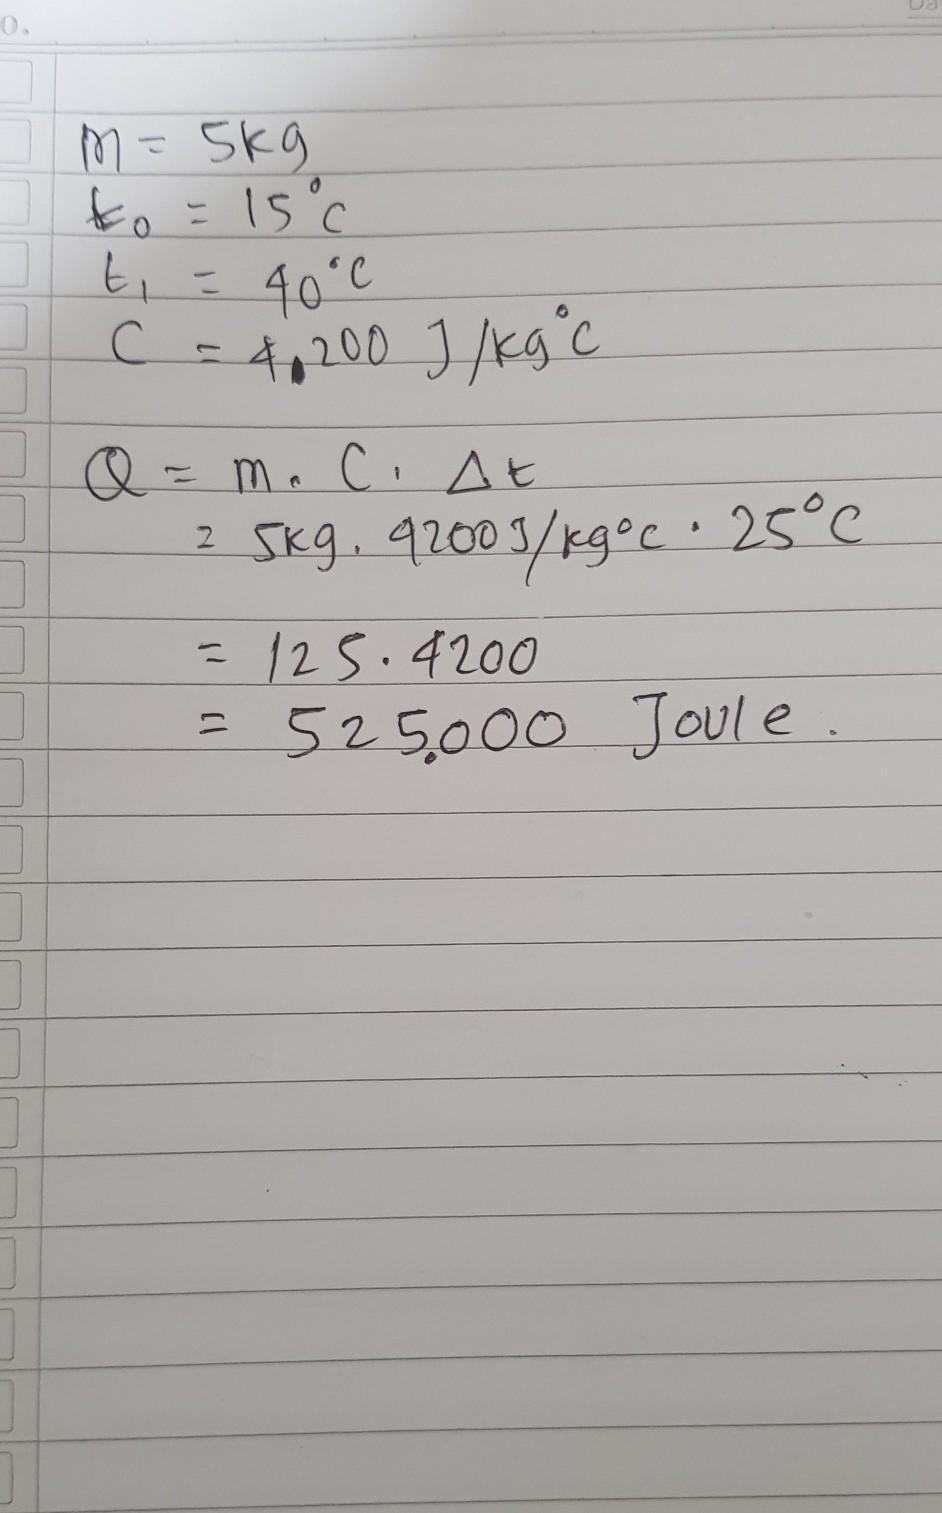 o.
m = 5kg
t₀ = 15°C
t₁ = 40°C
C = 4.200 J/kg°C
Q = m. C. Δt
= 5kg. 4200J/kg°C . 25°C
= 125.4200
= 525.000 Joule.